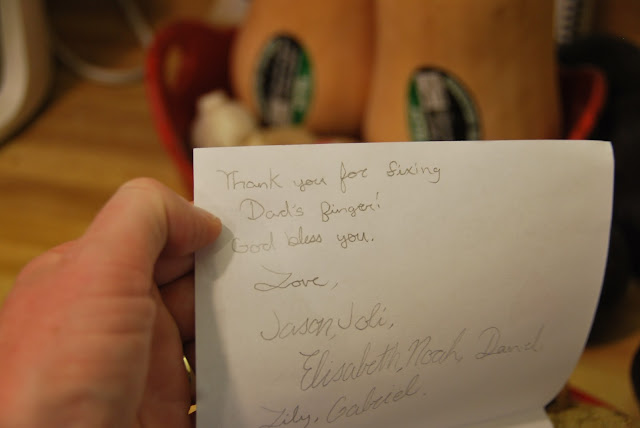 Thank you for fixing
Dad's finger!
God bless you.
Love,
Jason, Joli,
Elisabeth, Noah, David,
Lily, Gabriel.